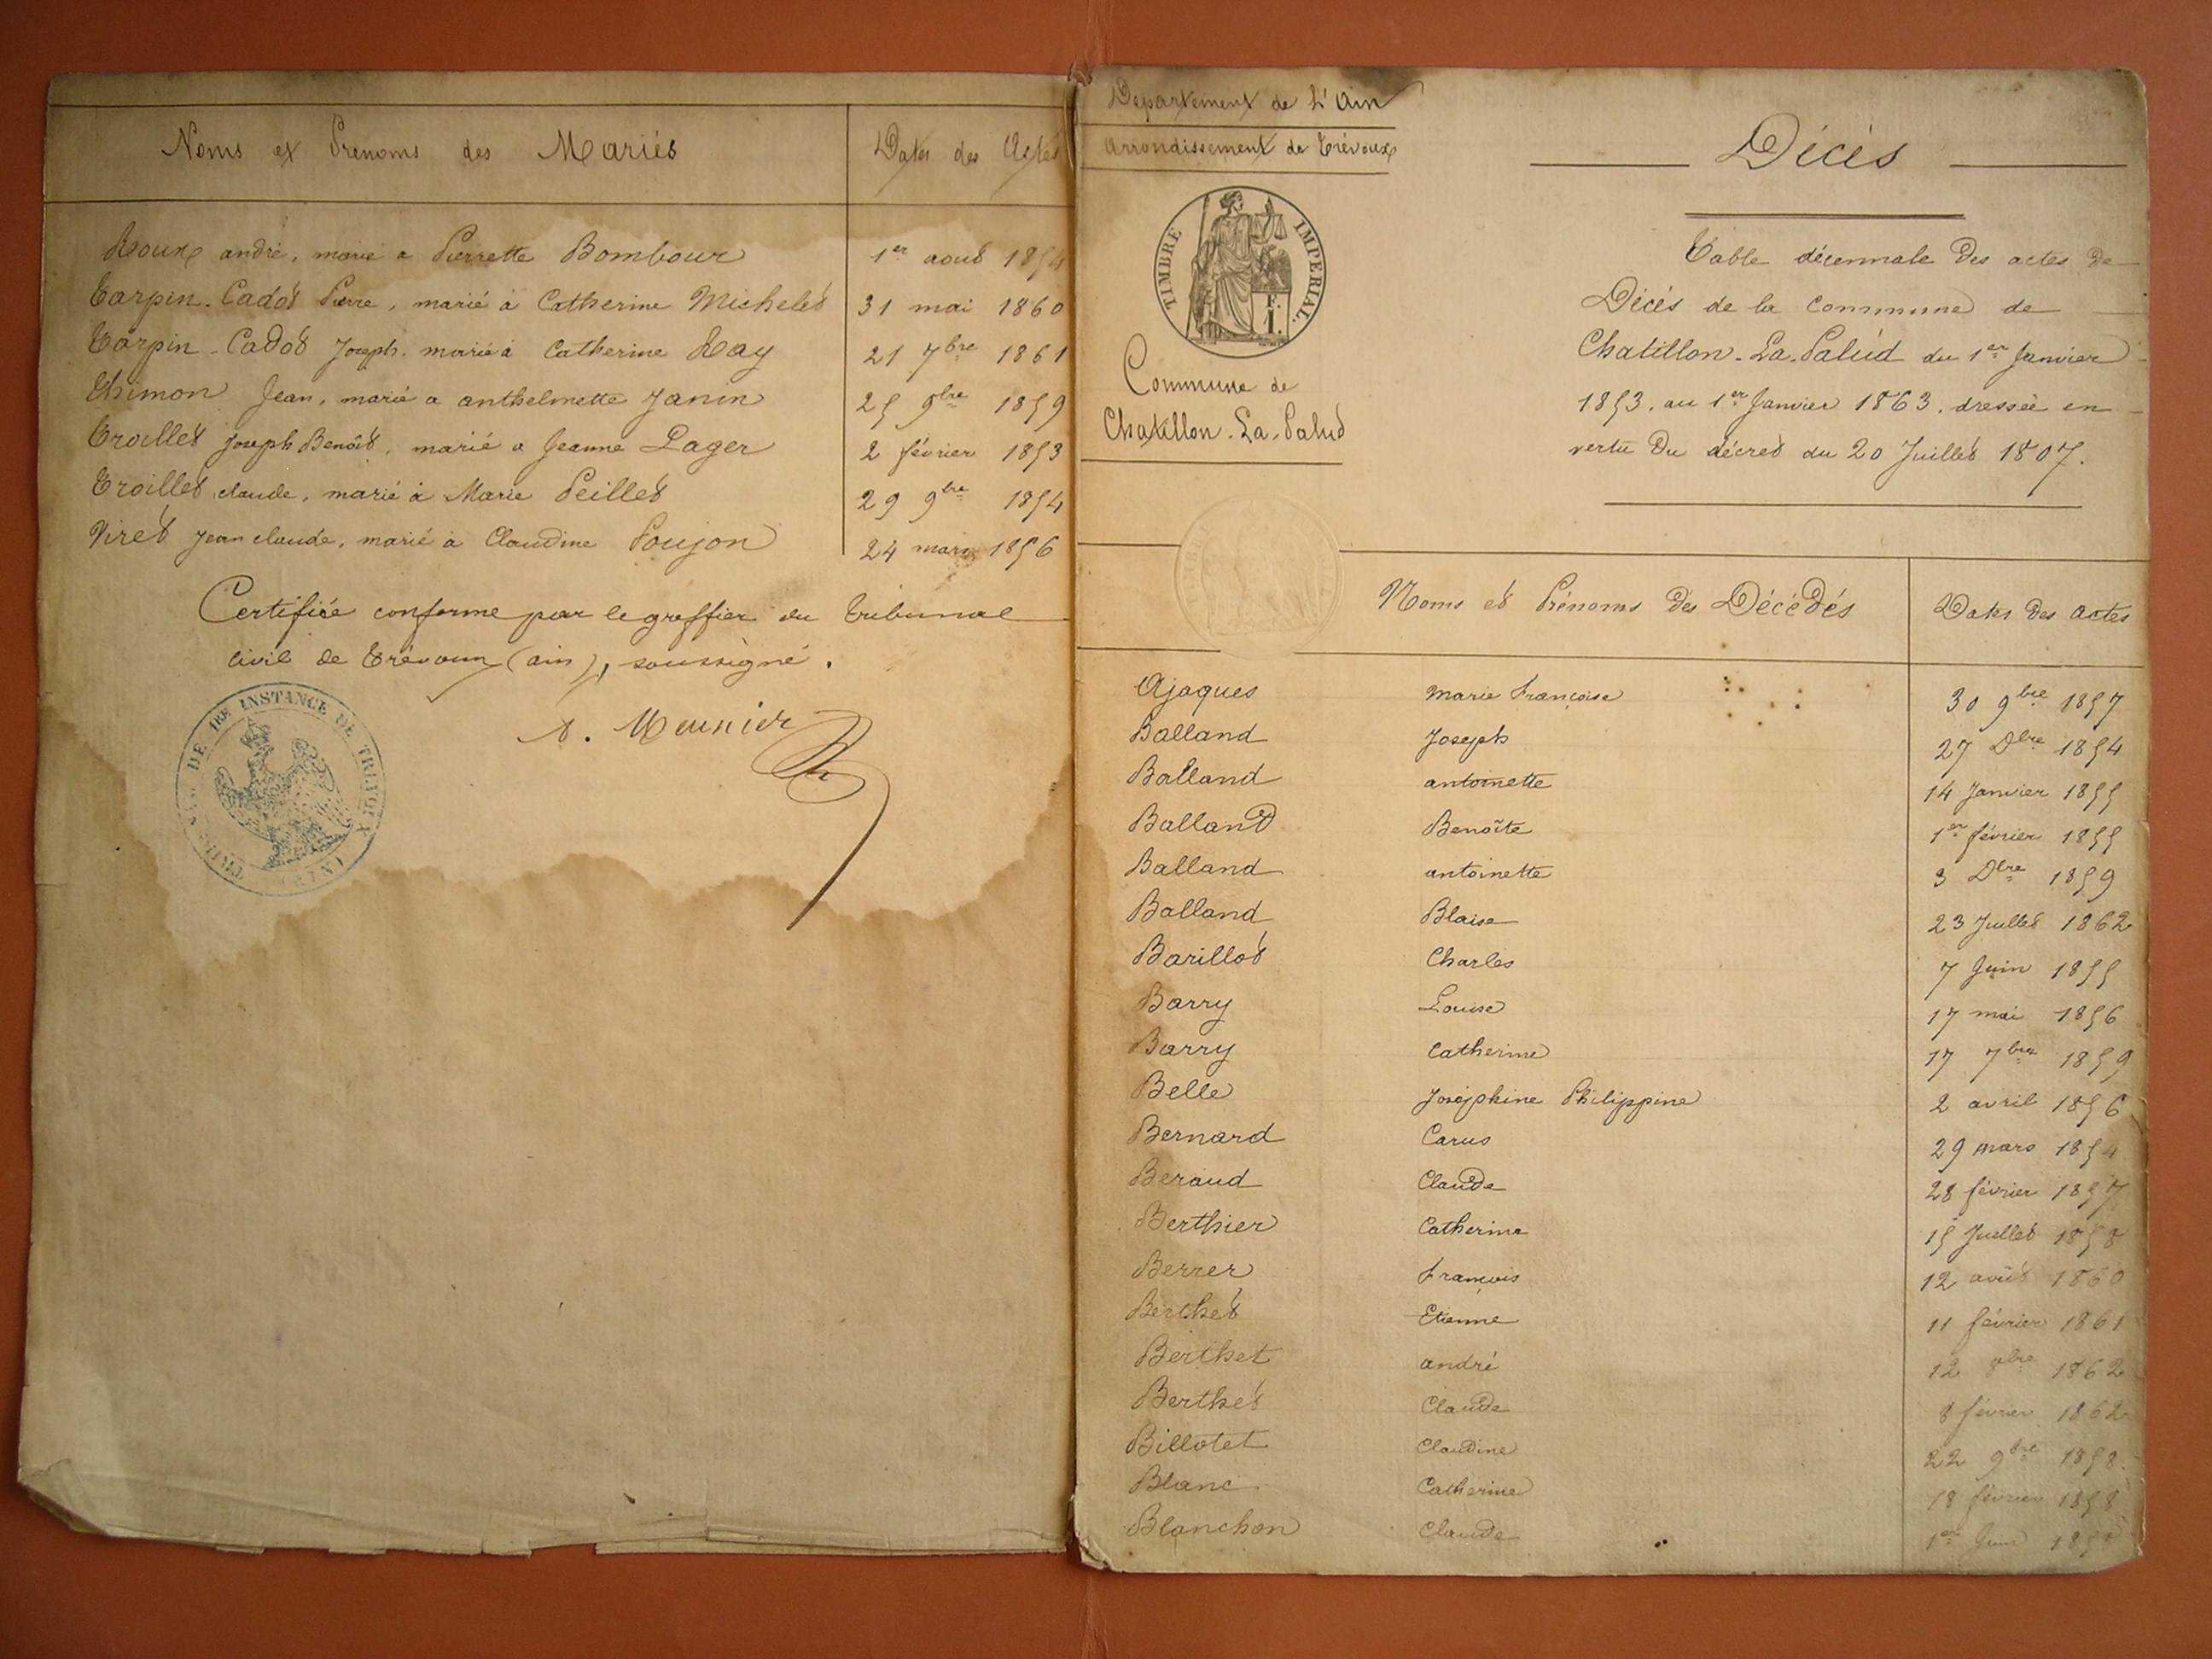 Noms et Prenoms des Mariés
Dates des Actes
Roux andré, marié a Pierrette Bombour
1er aout 1854
Carpin-Cadot Pierre, marié à Catherine Michelet
31 mai 1860
Carpin-Cadot Joseph. marié à Catherine Ray
21 7bre 1861
Thimon Jean, marié a anthelmette Janin
25 9bre 1859
Troillet Joseph Benoît, marié a Jeanne Pager
2 février 1853
Troillet claude, marié à Marie Peillet
29 9bre 1854
Viret Jean claude, marié à Claudine Poujon
24 mars 1856
Certifiée conforme par le greffier du tribunal
civil de Trévoux (ain), soussigné.
Meunier
DE 1RE INSTANCE DE TREVOUX
(AIN)
Departement de L'Ain
Arrondissement de Trévoux
TIMBRE IMPERIAL.
Commune de
Chatillon-La-Palud
Décès
Table décennale des actes de
Décès de la Commune de
Chatillon-La-Palud du 1er Janvier
1853, au 1er Janvier 1863, dressée en
vertu du décret du 20 Juillet 1807.
Noms et Prénoms des Décédés
Dates des actes
Ajaques Marie Françoise 30 9bre 1857
Balland Joseph 27 Dbre 1854
Balland antoinette 14 Janvier 1855
Balland Benoîte 1er février 1855
Balland antoinette 3 Dbre 1859
Balland Blaise 23 Juillet 1862
Barillot Charles 7 Juin 1855
Barry Louise 17 mai 1856
Barry Catherine 17 7bre 1859
Belle Joséphine Philippine 2 avril 1856
Bernard Carus 29 mars 1854
Beraud Claude 28 février 1857
Berthier Catherine 15 Juillet 1858
Berrer François 12 août 1860
Berthet Etienne 11 février 1861
Berthet andré 12 8bre 1862
Berthet Claude 8 février 1862
Billotet Claudine 22 9bre 1858
Blanc Catherine 18 février 1858
Blanchon Claude 1er Juin